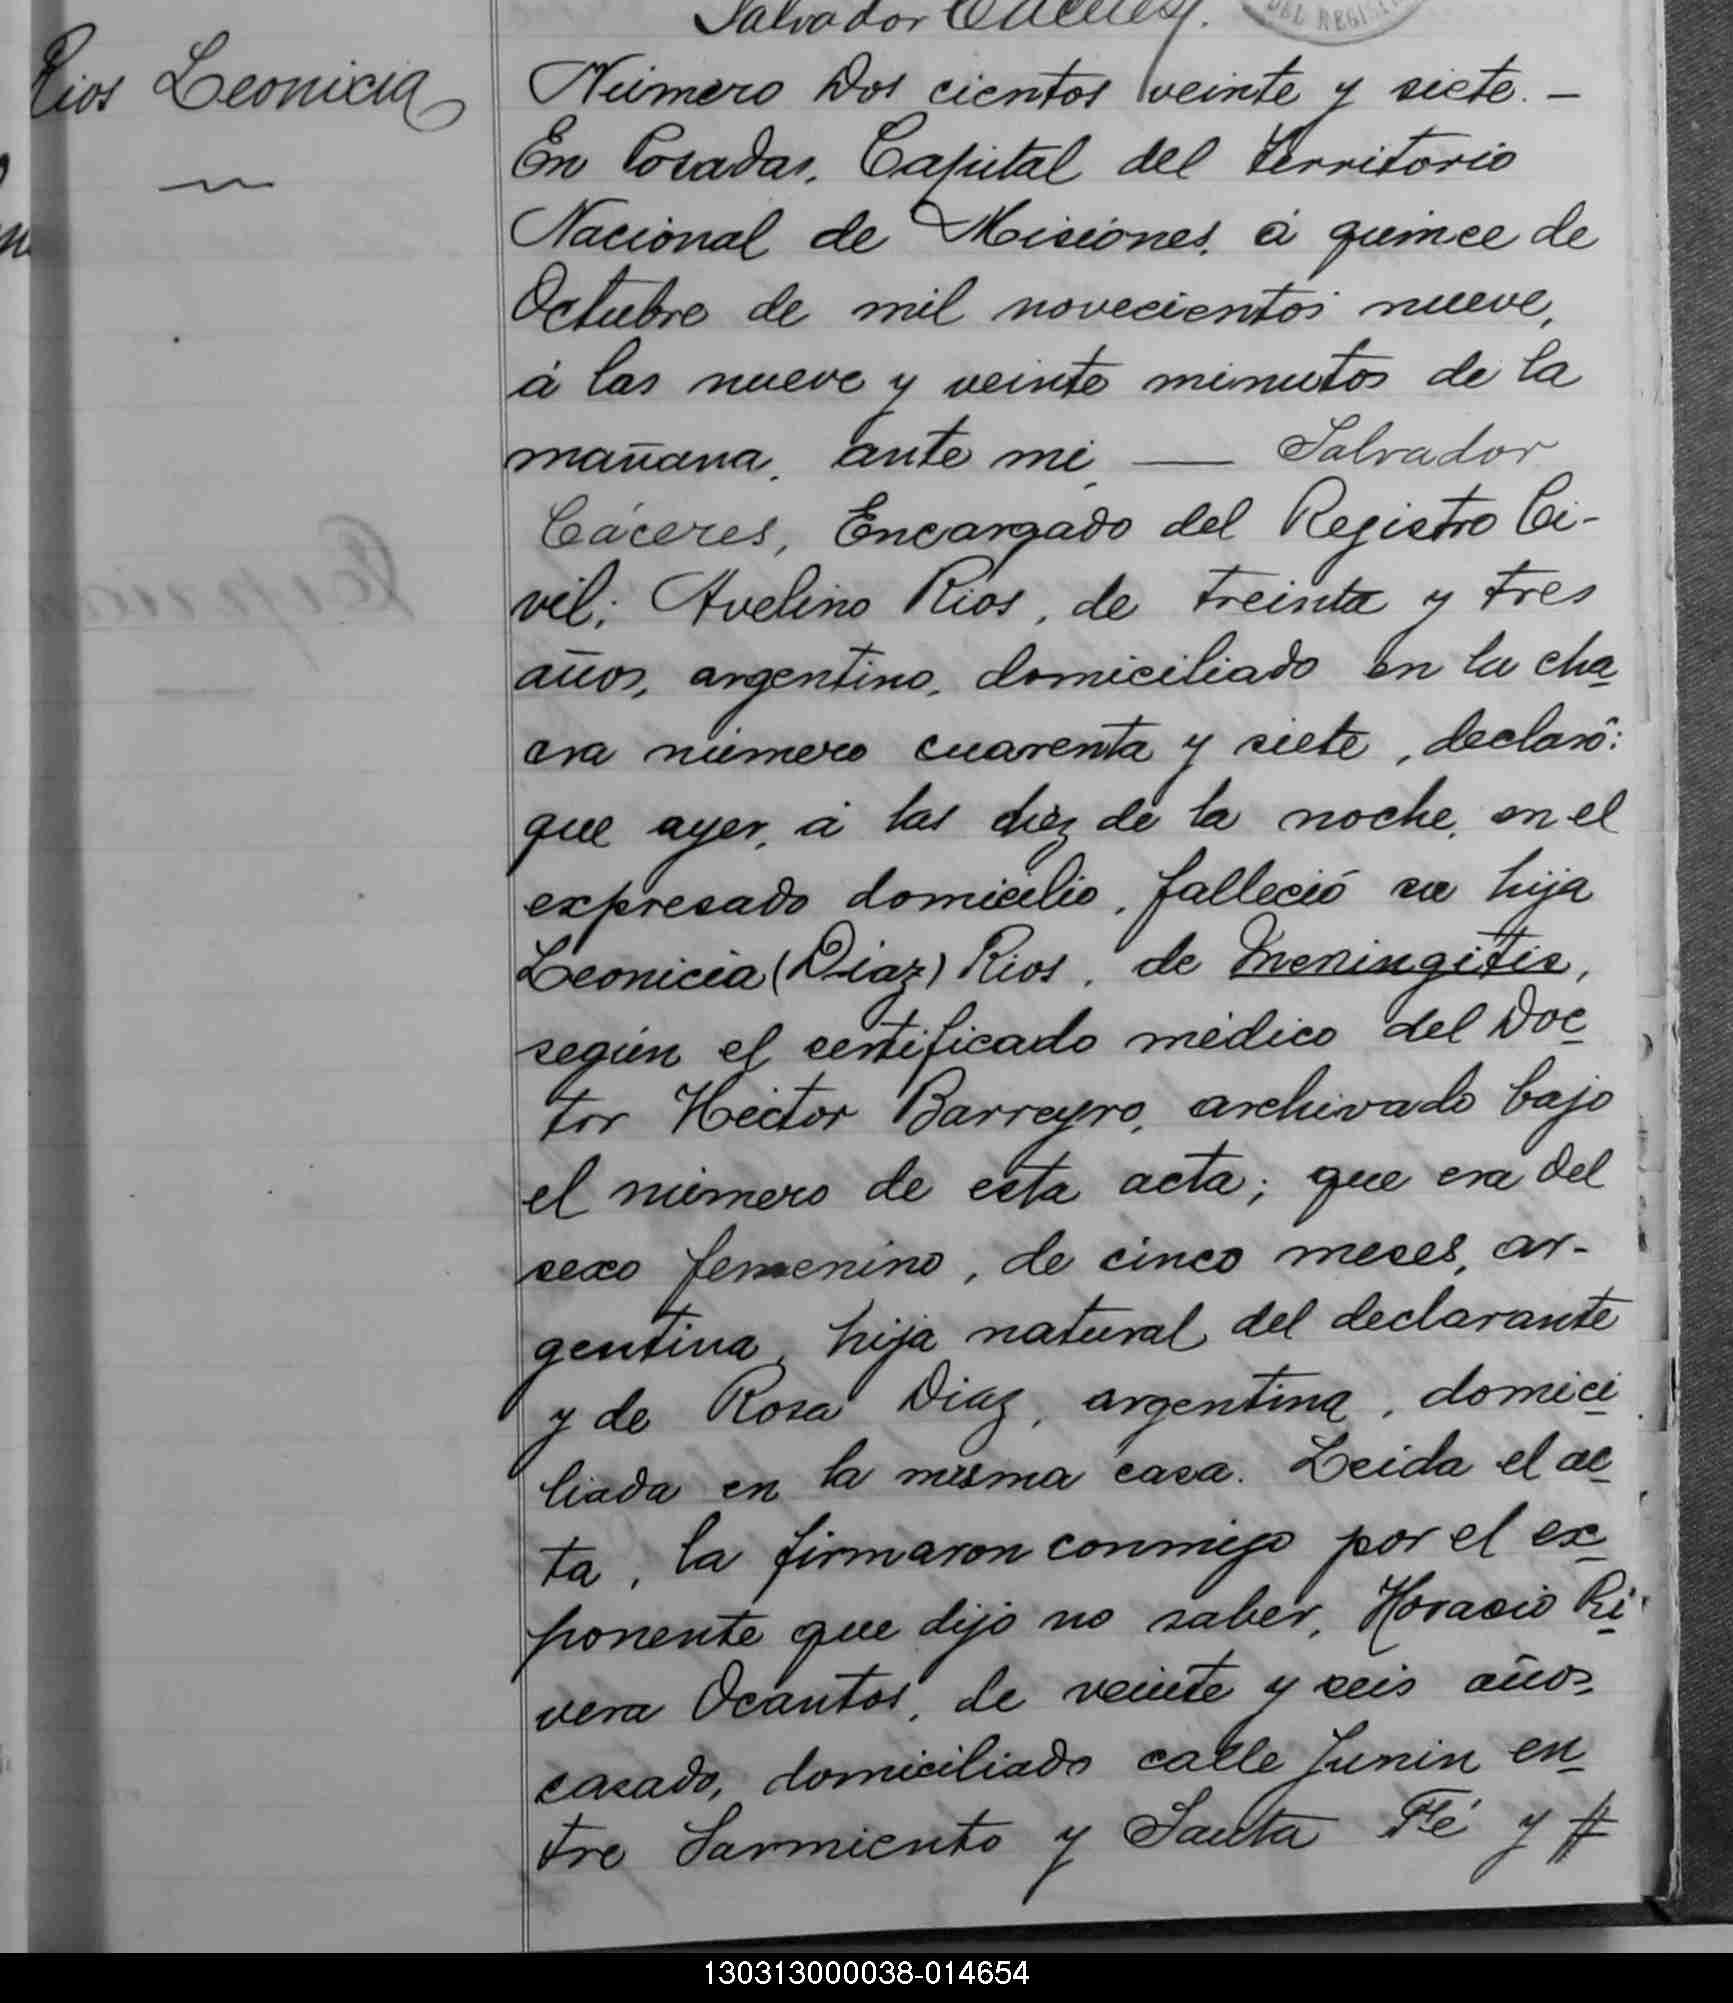 Salvador Cáceres.
DEL REGIS
Rios Leonicia
Número Dos cientos veinte y siete. —
En Posadas, Capital del territorio
Nacional de Misiones, á quince de
Octubre de mil novecientos nueve,
á las nueve y veinte minutos de la
mañana, ante mi, — Salvador
Cáceres, Encargado del Registro Ci-
vil; Avelino Rios, de treinta y tres
años, argentino, domiciliado en la cha
cra número cuarenta y siete, declaró:
que ayer, á las diez de la noche, en el
expresado domicilio, falleció su hija
Leonicia (Diaz) Rios, de Meningitis,
según el certificado médico del Doc
tor Héctor Barreyro, archivado bajo
el número de esta acta; que era del
sexo femenino, de cinco meses, ar-
gentina, hija natural del declarante
y de Rosa Diaz, argentina, domici
liada en la misma casa. Leida el ac
ta, la firmaron conmigo por el ex
ponente que dijo no saber, Horacio Ri
vera Ocantos, de veinte y seis años,
casado, domiciliado calle Junin en
tre Sarmiento y Santa Fé y #
130313000038-014654